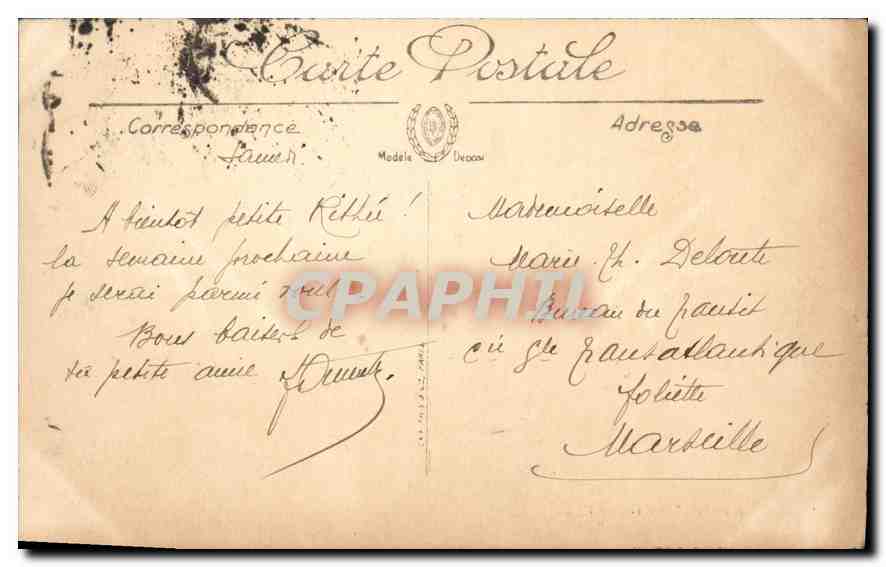 Carte Postale
Correspondance
Adresse
Samedi
Modèle Déposé
A bientôt petite
la semaine prochaine
je serai parmi vous.
Bons baisers de
ta petite amie
Mademoiselle
Marie. Th.
Bureau du transit
Cie Gle transatlantique
Joliette
Marseille
CPAPHIL
PARIS